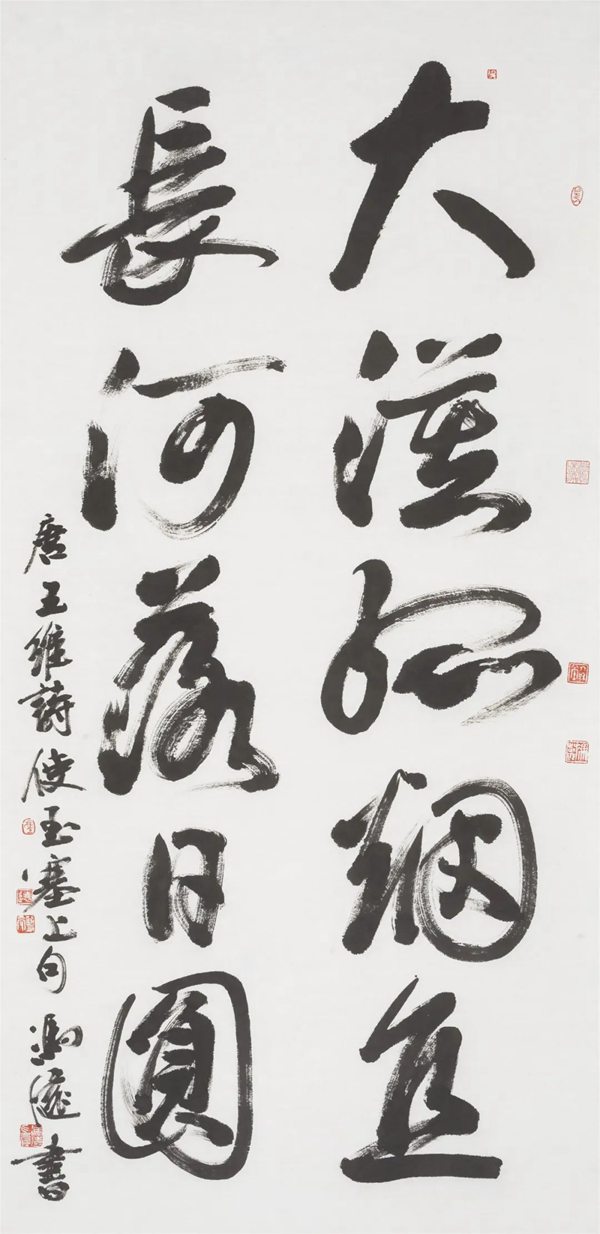 大漠孤烟直
長河落日圓
唐王維詩使至塞上句 書